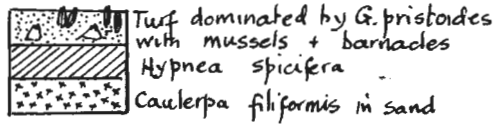 Turf dominated by G. pristoides
with mussels + barnacles
Hypnea spicifera
Caulerpa filiformis in sand